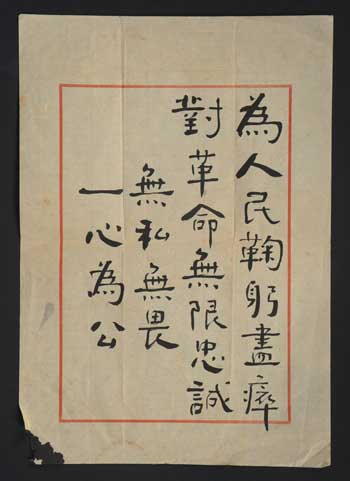 為人民鞠躬盡瘁
對革命無限忠誠
無私無畏
一心為公